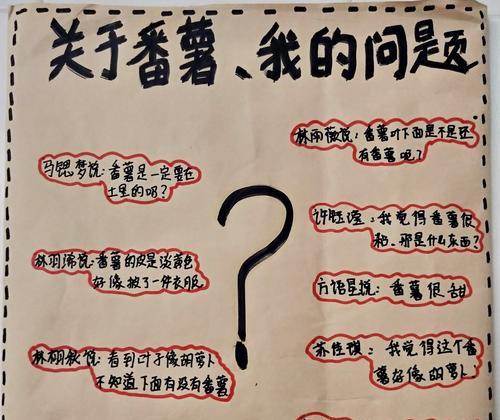 关于番薯、我的问题
马锶梦说:番薯是一定要在
土里的吗?
林羽浠说:番薯的皮是淡黄色
好像披了一件衣服
林栩钦说:看到叶子像胡萝卜
不知道下面有没有番薯
林雨薇说:番薯叶下面是不是还
有番薯呢?
许钰滢:我觉得番薯很
粘、那是什么东西?
方语星说:番薯很甜
苏佳琪:我觉得这个番
薯好像胡萝卜